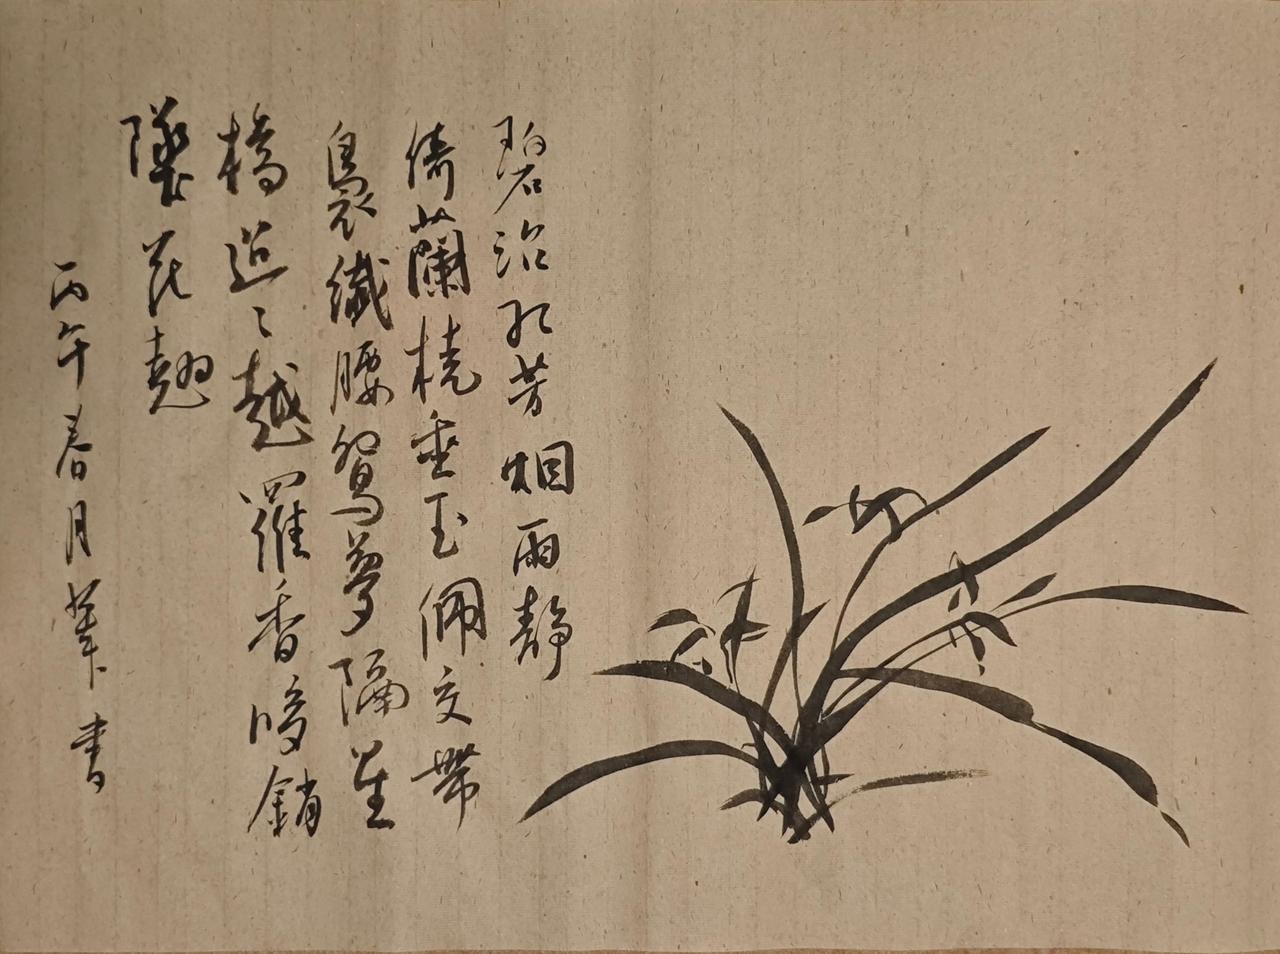 碧沼红芳烟雨静
倚蘭橈垂玉佩交帶
裊纖腰鴛夢隔星
橋迢〻越羅香暗銷
墜花翹
丙午春月書